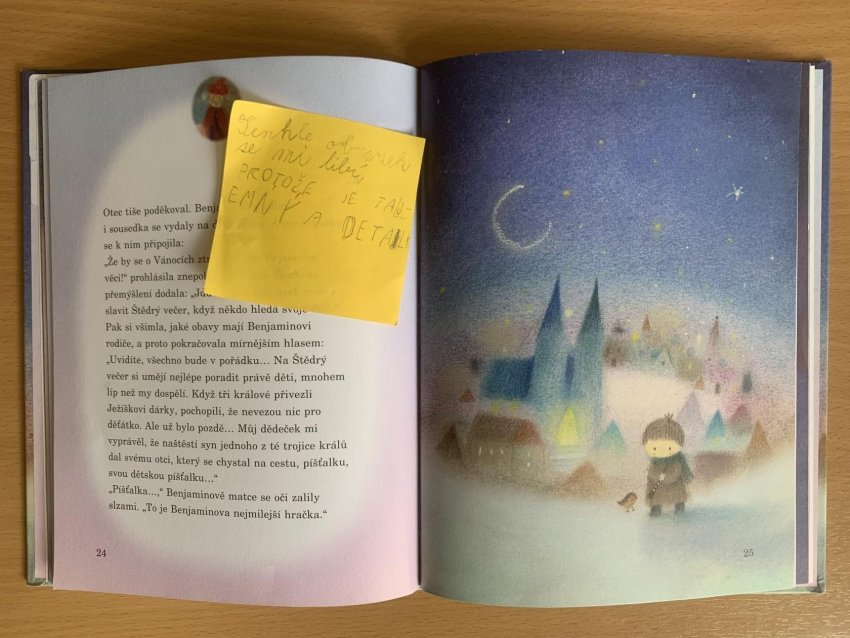 Tenhle obrázek
se mi líbí,
PROTOŽE JE TAJ-
EMNÝ A DETAIL
Otec tiše poděkoval.
i sousedka se vydaly na
se k nim připojila:
„Že by se o Vánocích
věci!“ prohlásila
přemýšlení dodala:
slavit Štědrý večer, když někdo hledá svoje
Pak si všimla, jaké obavy mají Benjaminovi
rodiče, a proto pokračovala mírnějším hlasem:
„Uvidíte, všechno bude v pořádku… Na Štědrý
večer si umějí nejlépe poradit právě děti, mnohem
líp než my dospělí. Když tři králové přivezli
Ježíškovi dárky, pochopili, že nevezou nic pro
děťátko. Ale už bylo pozdě… Můj dědeček mi
vyprávěl, že naštěstí syn jednoho z té trojice králů
dal svému otci, který se chystal na cestu, píšťalku,
svou dětskou píšťalku…“
„Píšťalka…,“ Benjaminově matce se oči zalily
slzami. „To je Benjaminova nejmilejší hračka.“
24
25